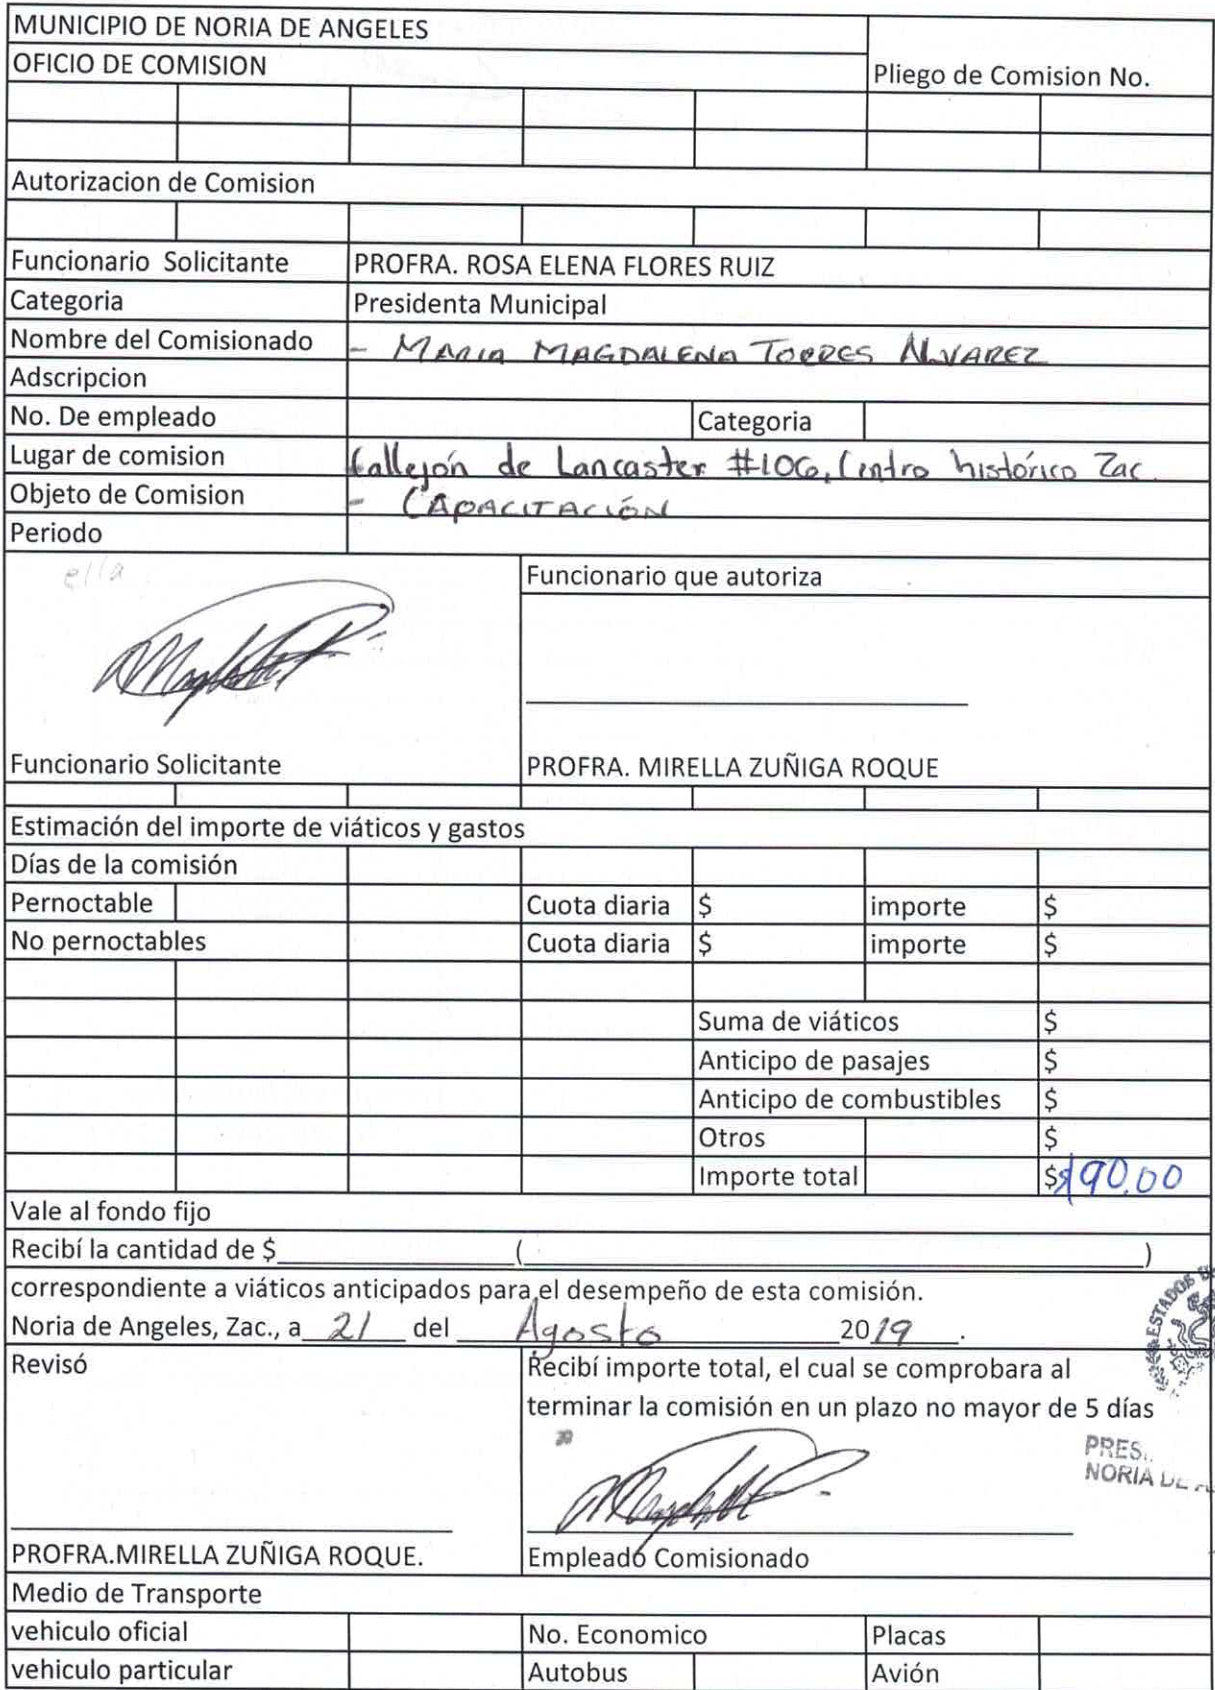 MUNICIPIO DE NORIA DE ANGELES
OFICIO DE COMISION
Pliego de Comision No.
Autorizacion de Comision
Funcionario Solicitante PROFRA. ROSA ELENA FLORES RUIZ
Categoria Presidenta Municipal
Nombre del Comisionado - MARIA MAGDALENA TORRES ALVAREZ
Adscripcion
No. De empleado Categoria
Lugar de comision Callejón de Lancaster #106, Centro histórico Zac.
Objeto de Comision - CAPACITACIÓN
Periodo
ella
Funcionario que autoriza
Funcionario Solicitante PROFRA. MIRELLA ZUÑIGA ROQUE
Estimación del importe de viáticos y gastos
Días de la comisión
Pernoctable Cuota diaria $ importe $
No pernoctables Cuota diaria $ importe $
Suma de viáticos $
Anticipo de pasajes $
Anticipo de combustibles $
Otros $
Importe total $ 190.00
Vale al fondo fijo
Recibí la cantidad de $ ( )
correspondiente a viáticos anticipados para el desempeño de esta comisión.
Noria de Angeles, Zac., a 21 del Agosto 2019.
Revisó
Recibí importe total, el cual se comprobara al
terminar la comisión en un plazo no mayor de 5 días
ESTADOS
PRES
NORIA DE
PROFRA.MIRELLA ZUÑIGA ROQUE. Empleado Comisionado
Medio de Transporte
vehiculo oficial No. Economico Placas
vehiculo particular Autobus Avión